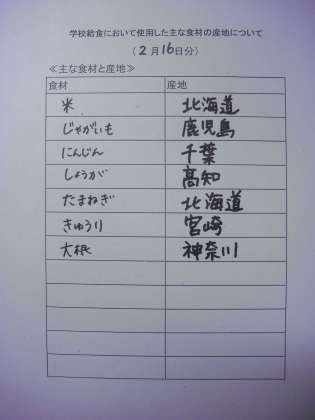 学校給食において使用した主な食材の産地について
(2月16日分)
≪主な食材と産地≫
食材 産地
米 北海道
じゃがいも 鹿児島
にんじん 千葉
しょうが 高知
たまねぎ 北海道
きゅうり 宮崎
大根 神奈川